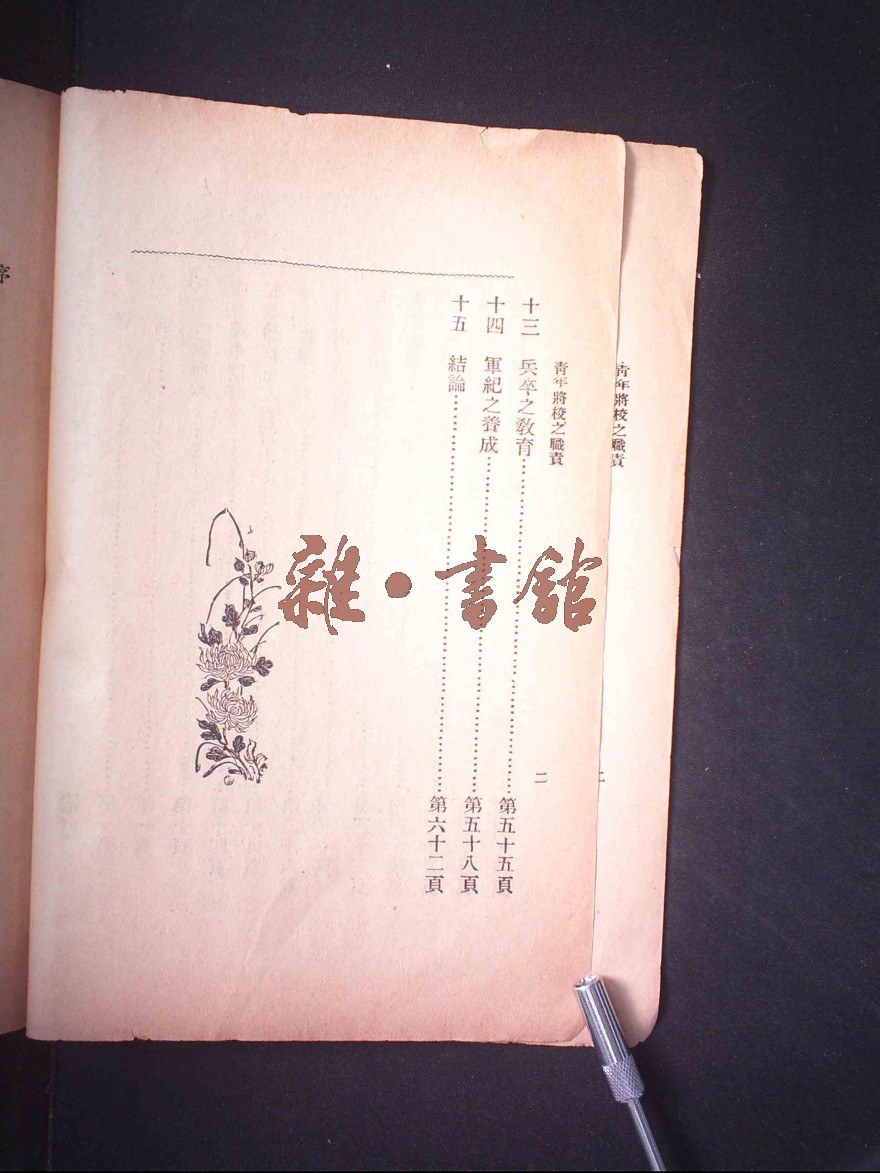 青年將校之職責
青年將校之職責
二
十三 兵卒之教育……第五十五頁
十四 軍紀之養成……第五十八頁
十五 結論……第六十二頁
雜·書館